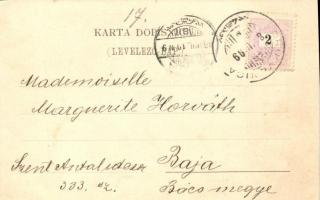 17.
KARTA DOPIS
(LEVELEZŐ
2
Mademoiselle
Marguerite Horváth
Szent Antal utcza Baja
333. sz. Bács-megye